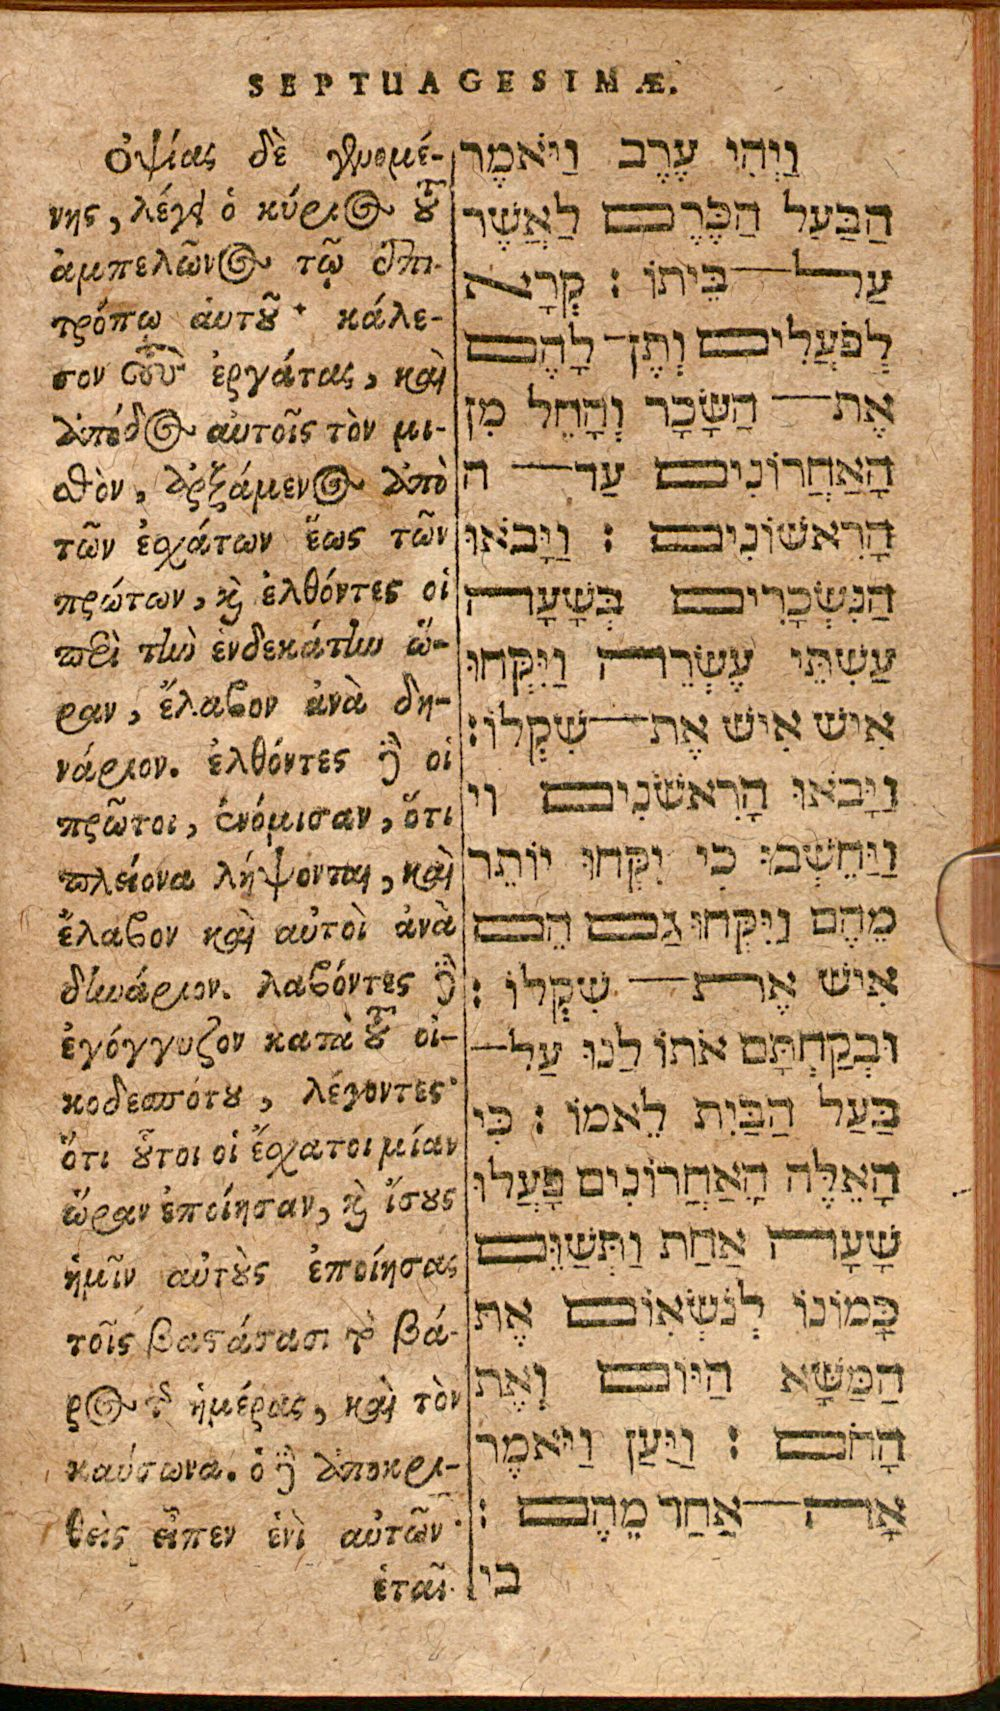 SEPTUAGESIMÆ.
ὀψίας δὲ γινομέ-
νης, λέγει ὁ κύριος τοῦ
ἀμπελῶνος τῷ ἐπι-
τρόπῳ ἀυτοῦ· κάλε-
σον τοὺς ἐργάτας, καὶ
ἀπόδος αὐτοῖς τὸν μι-
σθὸν, ἀρξάμενος ἀπὸ
τῶν ἐσχάτων ἕως τῶν
πρώτων, καὶ ἐλθόντες οἱ
περὶ τὴν ἑνδεκάτην ὥ-
ραν, ἔλαβον ἀνὰ δη-
νάριον. ἐλθόντες δὲ οἱ
πρῶτοι, ἐνόμισαν, ὅτι
πλείονα λήψονται, καὶ
ἔλαβον καὶ αὐτοὶ ἀνὰ
δηνάριον. λαβόντες δὲ
ἐγόγγυζον κατὰ τοῦ οἰ-
κοδεσπότου, λέγοντες·
ὅτι οὗτοι οἱ ἔσχατοι μίαν
ὥραν ἐποίησαν, καὶ ἴσους
ἡμῖν αὐτοὺς ἐποίησας
τοῖς βαστάσασι τὸ βά-
ρος τῆς ἡμέρας, καὶ τὸν
καύσωνα. ὁ δὲ ἀποκρι-
θεὶς εἶπεν ἑνὶ αὐτῶν·
ἑταῖ-
וַיְהִי עֶרֶב וַיֹּאמֶר
הַבַּעַל הַכֶּרֶם לַאֲשֶׁר
עַל בֵּיתוֹ : קְרָא
לְפֹעֲלִים וְתֶן־ לָהֶם
אֶת־ הַשָּׂכָר וְהָחֵל מִן
הָאַחֲרוֹנִים עַד־ ה
הָרִאשׁוֹנִים : וַיָּבֹאוּ
הַנִּשְׂכָּרִים בְּשָׁעָה
עַשְׁתֵּי עֶשְׂרֵה וַיִּקְחוּ
אִישׁ אִישׁ אֶת־ שִׁקְלוֹ :
וַיָּבֹאוּ הָרִאשֹׁנִים וי
וַיַּחֵשְׁבוּ כִּי יִקְּחוּ יוֹתֵר
מֵהֶם וַיִּקְחוּ גַם הֵם
אִישׁ אֶת־ שִׁקְלוֹ :
וּבְקַחְתָּם אֹתוֹ לַנּוּ עַל־
בַּעַל הַבַּיִת לֵאמוֹ : כִּי
הָאֵלֶּה הָאַחֲרוֹנִים פָּעֲלוּ
שָׁעָה אַחַת וַתְּשַׁוֵּם
כָּמוֹנוּ לְנֹשְׂאִום אֶת
הַמַּשָּׂא הַיּוֹם וְאֶת
הָחֹם : וַיַּעַן וַיֹּאמֶר
אָה־ אַחַד מֵהֶם :
כי